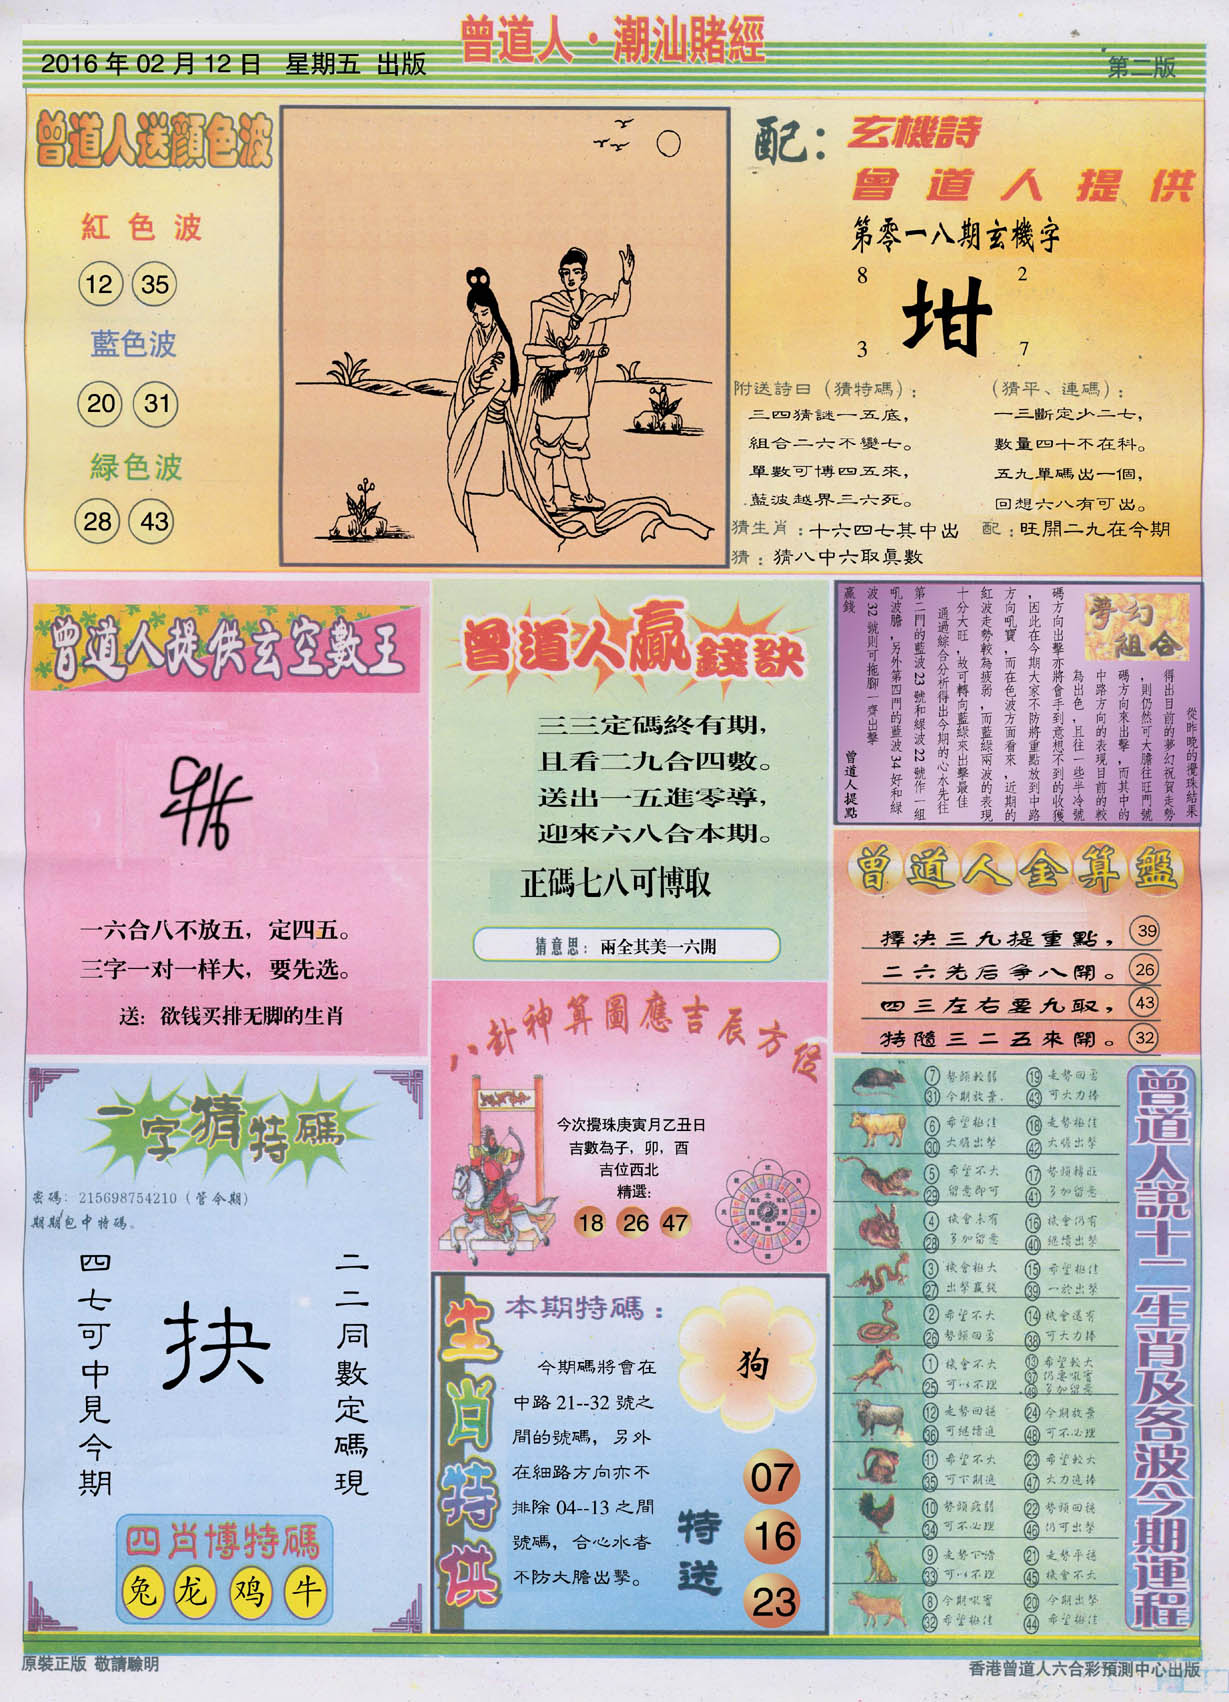 曾道人·潮汕賭經
2016 年 02 月 12 日 星期五 出版
第二版
曾道人送顏色波
紅色波
12 35
藍色波
20 31
緑色波
28 43
配：玄機詩
曾道人提供
第零一八期玄機字
8 2
坩
3 7
附送詩曰（猜特碼）：
三四猜謎一五底，
組合二六不變七。
單數可博四五來，
藍波越界三六死。
（猜平、連碼）：
一三斷定少二七，
數量四十不在科。
五九單碼出一個，
回想六八有可出。
猜生肖：十六四七其中出
配：旺開二九在今期
猜：猜八中六取眞數
曾道人提供玄空數王
一六合八不放五，定四五。
三字一对一样大，要先选。
送：欲钱买排无脚的生肖
曾道人贏錢訣
三三定碼終有期，
且看二九合四數。
送出一五進零導，
迎來六八合本期。
正碼七八可博取
猜意思：兩全其美一六開
夢幻組合
從昨晚的攪珠結果
得出目前的夢幻祝賀走勢
，則仍然可大膽往旺門號
碼方向來出擊，而其中的
中路方向的表現目前的較
為出色，且往一些半冷號
碼方向出擊亦將會手到意想不到的收獲
，因此在今期大家不防將重點放到中路
方向吼寶，而在色波方面看來，近期的
紅波走勢較為疲弱，而藍綠兩波的表現
十分大旺，故可轉向藍綠來出擊最佳
通過綜合分析得出今期的心水先往
第二門的藍波 23 號和綠波 22 號作一組
吼波膽，另外第四門的藍波 34 好和綠
波 32 號則可拖腳一齊出擊
贏錢
曾道人提點
曾道人金算盤
擇決三九提重點， 39
二六先后爭八開。 26
四三左右要九取， 43
特隨三二五來開。 32
八卦神算圖應吉辰方位
今次攪珠庚寅月乙丑日
吉數為子，卯，酉
吉位西北
精選：
18 26 47
一字猜特碼
密碼：215698754210（管今期）
期期包中特碼。
二二同數定碼現
抉
四七可中見今期
四肖博特碼
兔 龙 鸡 牛
生肖特供
本期特碼：
今期碼將會在
中路 21--32 號之
間的號碼，另外
在細路方向亦不
排除 04--13 之間
號碼，合心水者
不防大膽出擊。
狗
特送
07
16
23
曾道人説十二生肖及各波今期運程
7 勢頭較弱 19 走勢回勇
31 今期放棄 43 可大力捧
6 希望極佳 18 走勢極佳
30 大膽出擊 42 大膽出擊
5 希望不大 17 勢頭轉旺
29 留意即可 41 多加留意
4 機會未有 16 機會仍有
28 多加留意 40 繼續出擊
3 機會極大 15 希望極佳
27 出擊贏錢 39 一於出擊
2 希望不大 14 機會還有
26 勢頭回勇 38 可大力捧
1 機會不大 13 希望較大
25 可以不理 37 仍要吸寶
49 多加留意
12 走勢回穩 24 今期放棄
36 可繼續追 48 可不必理
11 希望不大 23 希望較大
35 可下期追 47 大力追捧
10 勢頭疲弱 22 勢頭回穩
34 可不必理 46 仍可出擊
9 走勢下滑 21 走勢平穩
33 可以不理 45 機會不大
8 今期吸寶 20 今期出擊
32 希望極佳 44 希望極佳
原裝正版 敬請驗明
香港曾道人六合彩預測中心出版